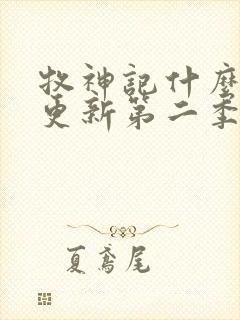 牧神記什麼
更新第二季
夏鳶尾